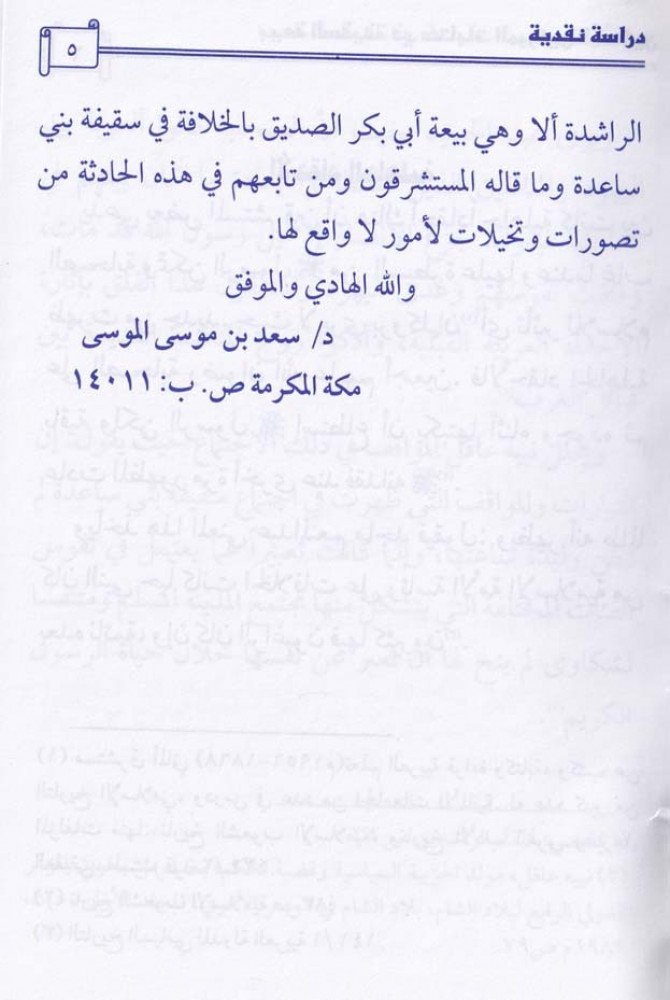 دراسة نقدية
٥
الراشدة ألا وهي بيعة أبي بكر الصديق بالخلافة في سقيفة بني
ساعدة وما قاله المستشرقون ومن تابعهم في هذه الحادثة من
تصورات وتخيلات لأمور لا واقع لها.
والله الهادي والموفق
د/ سعد بن موسى الموسى
مكة المكرمة ص. ب: ١٤٠١١